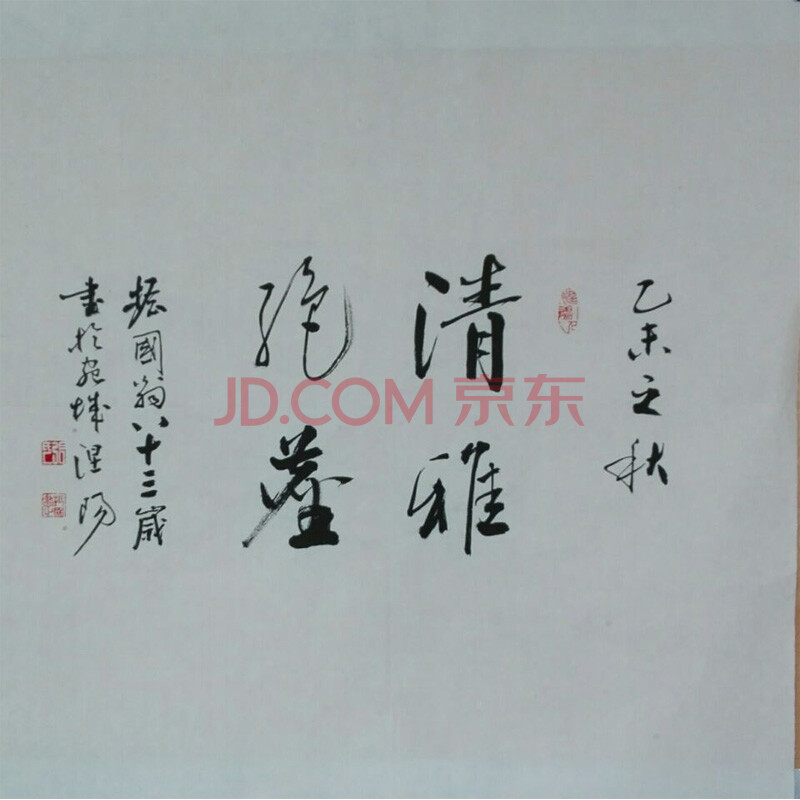 乙未之秋
清雅
絶塵
國翁八十三歲
書於宛城涅陽
JD.COM 京东